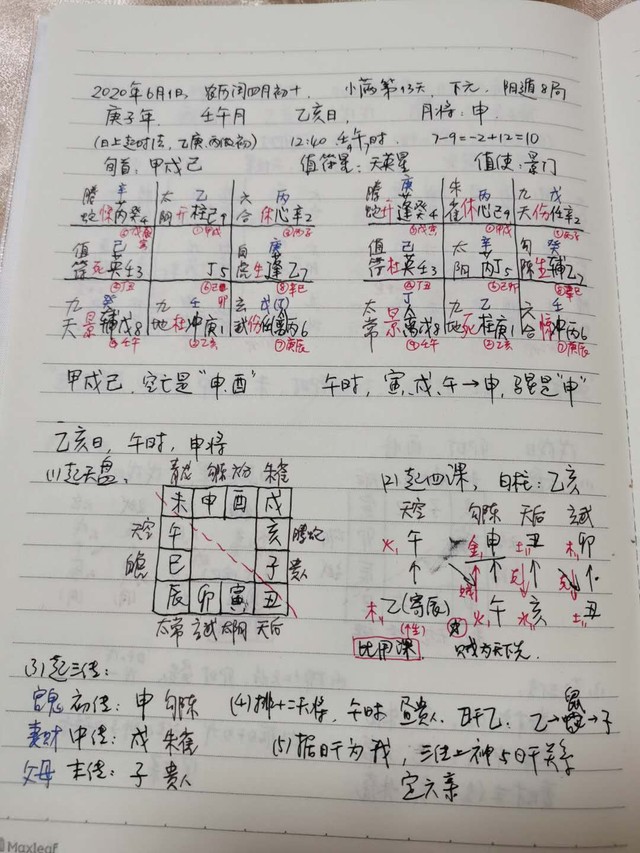 2020年6月1日, 农历闰四月初十, 小满第13天, 下元. 阳遁8局
庚子年. 壬午月 乙亥日, 月将:申.
(日上起时法, 乙庚丙做初) 12:40 壬午时. 7-9=-2+12=10
旬首:甲戌己 值符星:天英星 值使:景门
腾 辛 太 乙 六 丙 腾 庚 朱 丙 九 戊
蛇 芮癸4 阴开柱己9 合休心辛2 蛇开蓬癸4 雀休心己9 天 任辛2
值 己 白 庚 值 己 太 辛 勾 癸
符死英壬3 丁5 虎生蓬乙7 符杜英壬3 阴 芮丁5 陈生辅乙7
九 癸 九 壬 玄 戊(丁) 太 丁 九 乙 六 壬
天景辅戊8 地杜冲庚1 武 任 丙6 常景 戊8 地死柱庚1 合 冲丙6
甲戌己, 空亡是“申.酉” 午时, 寅.戌.午→申, 马星是“申”
乙亥日, 午时, 申将
(1)起天盘, 青龙 勾陈 六合 朱雀
未 申 酉 戌
天空 午 亥 腾蛇
白虎 巳 子 贵人
辰 卯 寅 丑
太常 玄武 太阴 天后
(2)起四课, 日柱:乙亥
天空 勾陈 天后 玄武
火,午 金,申 土,丑 木,卯
木,乙(寄辰) 火,午 水,亥 土,丑
(↑生)
比用课. 贼为天下先.
(3)起三传:
官鬼 初传:申 勾陈
妻财 中传:戌 朱雀
父母 末传:子 贵人
(4)排十二天将, 午时 昼贵人. 日干乙. 乙→鼠→子
(5)据日干为我, 三传上神与日干关系
定六亲
Maxleaf